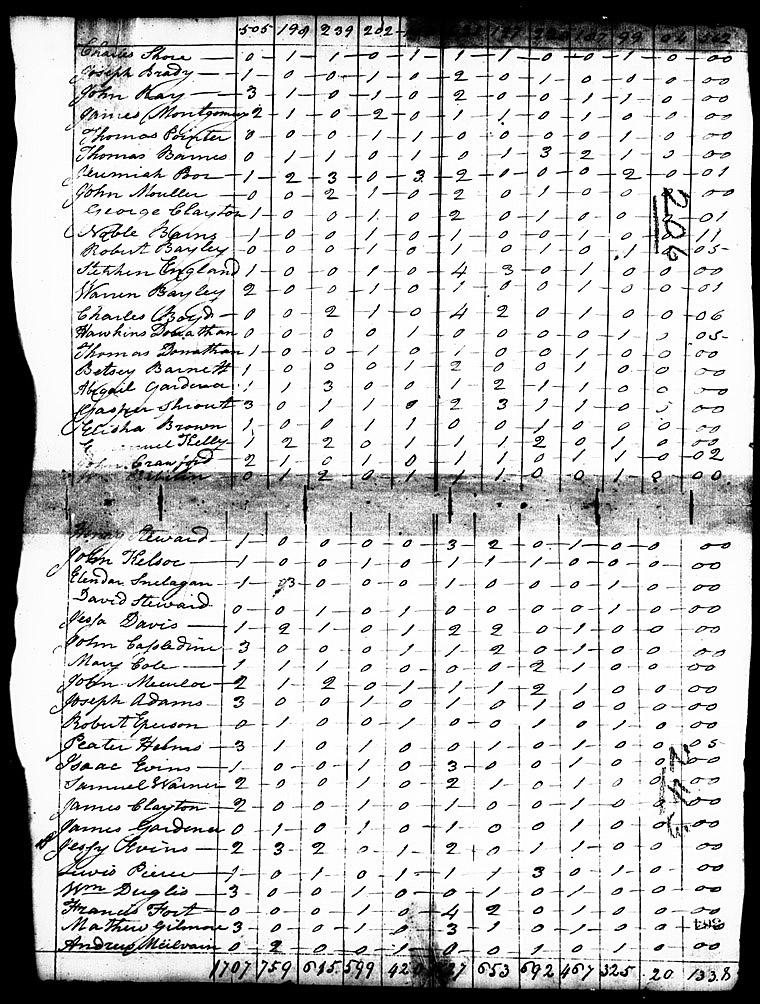 505 199 239 202 99 562
Charles Shore 0 1 1 0 1 1 1 0 0 1 0 00
Joseph Brady 1 0 0 1 0 2 0 0 1 0 0 00
John Kay 3 1 0 1 0 2 0 0 1 1 0 00
James Montgomery 2 1 0 2 0 1 1 0 1 0 0 00
Thomas Pointer 0 0 0 1 1 0 0 0 0 1 0 00
Thomas Barnes 0 1 1 0 1 0 1 3 2 1 0 00
Jeremiah Bor 1 2 3 0 3 2 0 0 0 2 0 01
John Mouller 0 0 2 1 0 2 0 1 0 0 00
206
George Clayton 1 0 0 1 0 2 0 1 0 0 01
Noble Bains 1 0 0 1 0 1 0 0 1 0 0 11
Robert Bayley 0 0 0 0 1 0 1 0 1 05
Stephen England 1 0 0 1 0 4 3 0 1 0 0 00
Warren Bayley 2 0 0 1 0 1 0 0 1 0 0 01
Charles Boyd 0 0 2 1 0 4 2 0 1 0 0 06
Hawkins Donathan 0 0 0 0 1 0 0 0 0 1 0 05
Thomas Donathan 1 0 0 1 0 1 0 0 1 0 0 00
Betsey Barnett 1 0 0 0 1 2 0 0 1 0 0 00
Abigail Gardener 1 1 3 0 0 1 2 1 1 0 0 00
Gasper Shrout 3 0 1 1 0 2 3 1 1 0 00
Elisha Brown 1 0 0 1 1 1 0 1 0 0 00
Kelly 1 2 2 0 1 1 1 2 0 1 0 00
Crawford 2 1 0 1 0 1 1 0 1 0 0 02
0 1 2 0 1 1 1 0 0 1 0 00
Steward 1 0 0 0 0 3 2 0 1 0 0 00
John Kelsoe 1 0 0 1 0 1 1 1 0 0 00
Elendar Snelagan 1 3 0 0 0 1 0 0 0 0 0 00
David Steward 0 0 1 0 1 0 0 0 0 1 0 00
Jessa Davis 1 2 1 0 1 2 2 0 1 0 0 00
John Cassledine 3 0 0 0 1 1 2 0 1 0 0 00
Mary Cole 1 1 1 0 0 0 0 2 1 0 0 00
John Meculoc 2 1 2 0 1 1 1 2 0 1 0 00
Joseph Adams 3 0 0 1 0 1 0 1 0 0 00
Robert Eperson 0 1 0 0 1 0 0 1 0 1 0 00
Peater Helms 3 1 0 1 0 0 1 0 1 0 0 05
Isaac Evins 1 0 0 1 0 3 0 0 1 0 0 00
Samuel Warner 2 0 0 1 0 2 1 0 1 0 0 00
245
James Clayton 2 0 0 1 0 1 0 0 1 0 0 00
James Gardener 0 1 0 1 0 1 0 0 1 0 0 00
Jessy Evins 2 3 2 0 1 2 0 1 1 0 0 00
Lewis Pierce 1 0 1 0 1 1 1 3 0 1 0 00
Wm Duglis 3 0 0 1 0 0 1 0 1 0 0 00
Francis Fort 0 0 0 1 0 4 2 0 1 0 0 00
Mathew Gilmore 3 0 0 1 0 3 1 0 1 0 0
Andrew Meilvain 0 2 0 0 1 0 0 1 0 1 0 00
1707 759 615 599 420 653 692 467 325 20 1338